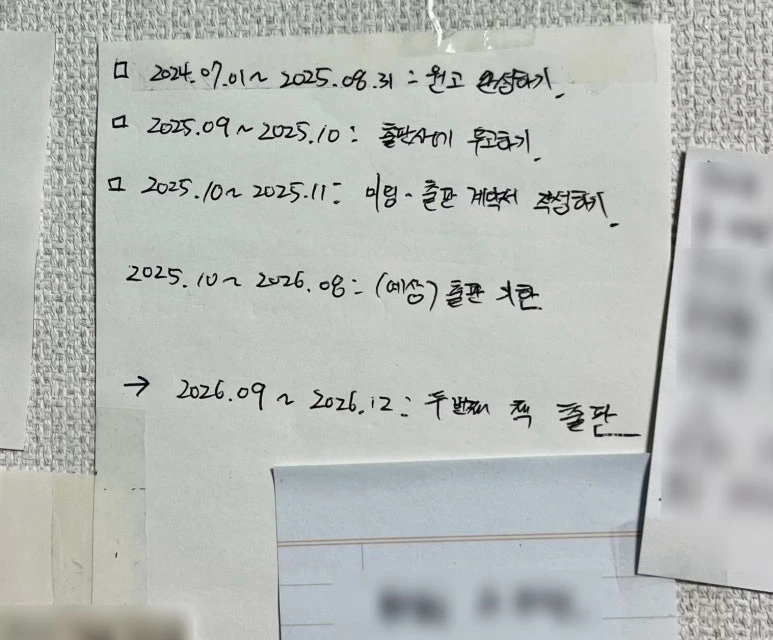 □ 2024.07.01~ 2025.08.31 : 원고 완성하기.
□ 2025.09 ~ 2025.10 : 출판사에 투고하기.
□ 2025.10 ~ 2025.11 : 미팅 · 출판 계약서 작성하기.
2025.10 ~ 2026.08 : (예상) 출판 기한
→ 2026.09 ~ 2026.12 : 두번째 책 출판